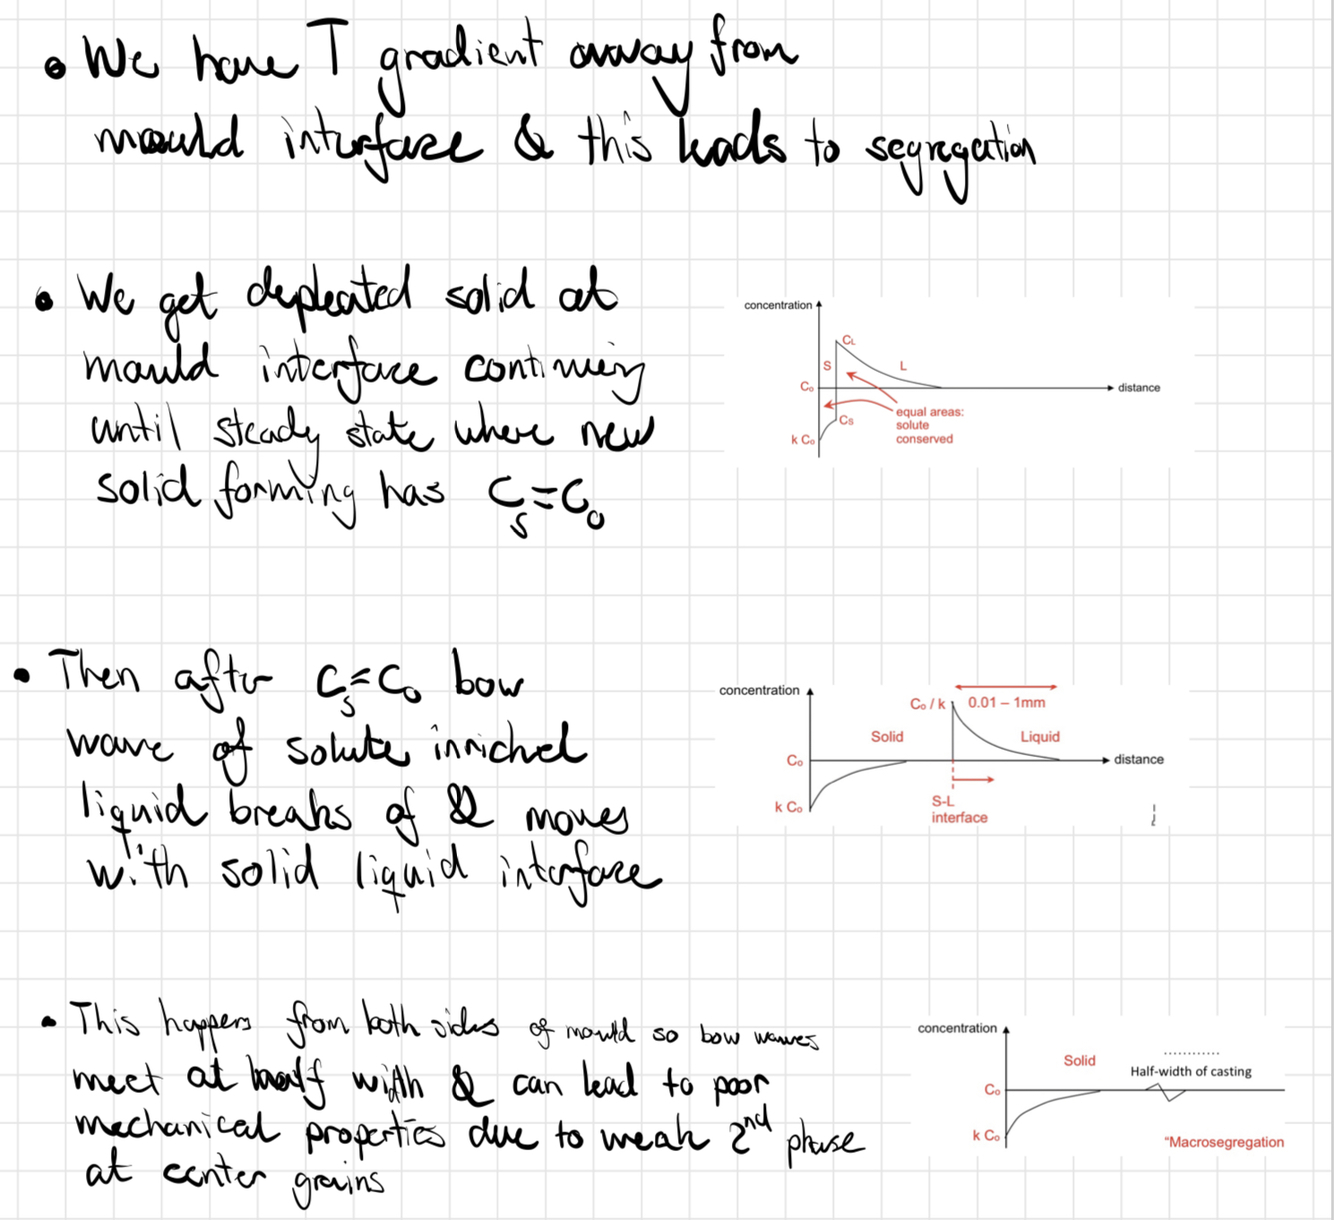 • We have T gradient away from
mould interface & this leads to segregation
• We get depleated solid at
mould interface continuing
until steady state where new
solid forming has Cs=C₀
concentration
CL
S
L
C₀
distance
equal areas:
solute
conserved
Cs
k C₀
• Then after Cs=C₀ bow
wave of solute inriched
liquid breaks of & moves
with solid liquid interface
concentration
C₀ / k
0.01 – 1mm
Solid
Liquid
C₀
distance
k C₀
S-L
interface
• This happens from both sides of mould so bow waves
meet at half width & can lead to poor
mechanical properties due to weak 2nd phase
at center grains
concentration
Solid
Half-width of casting
C₀
k C₀
"Macrosegregation